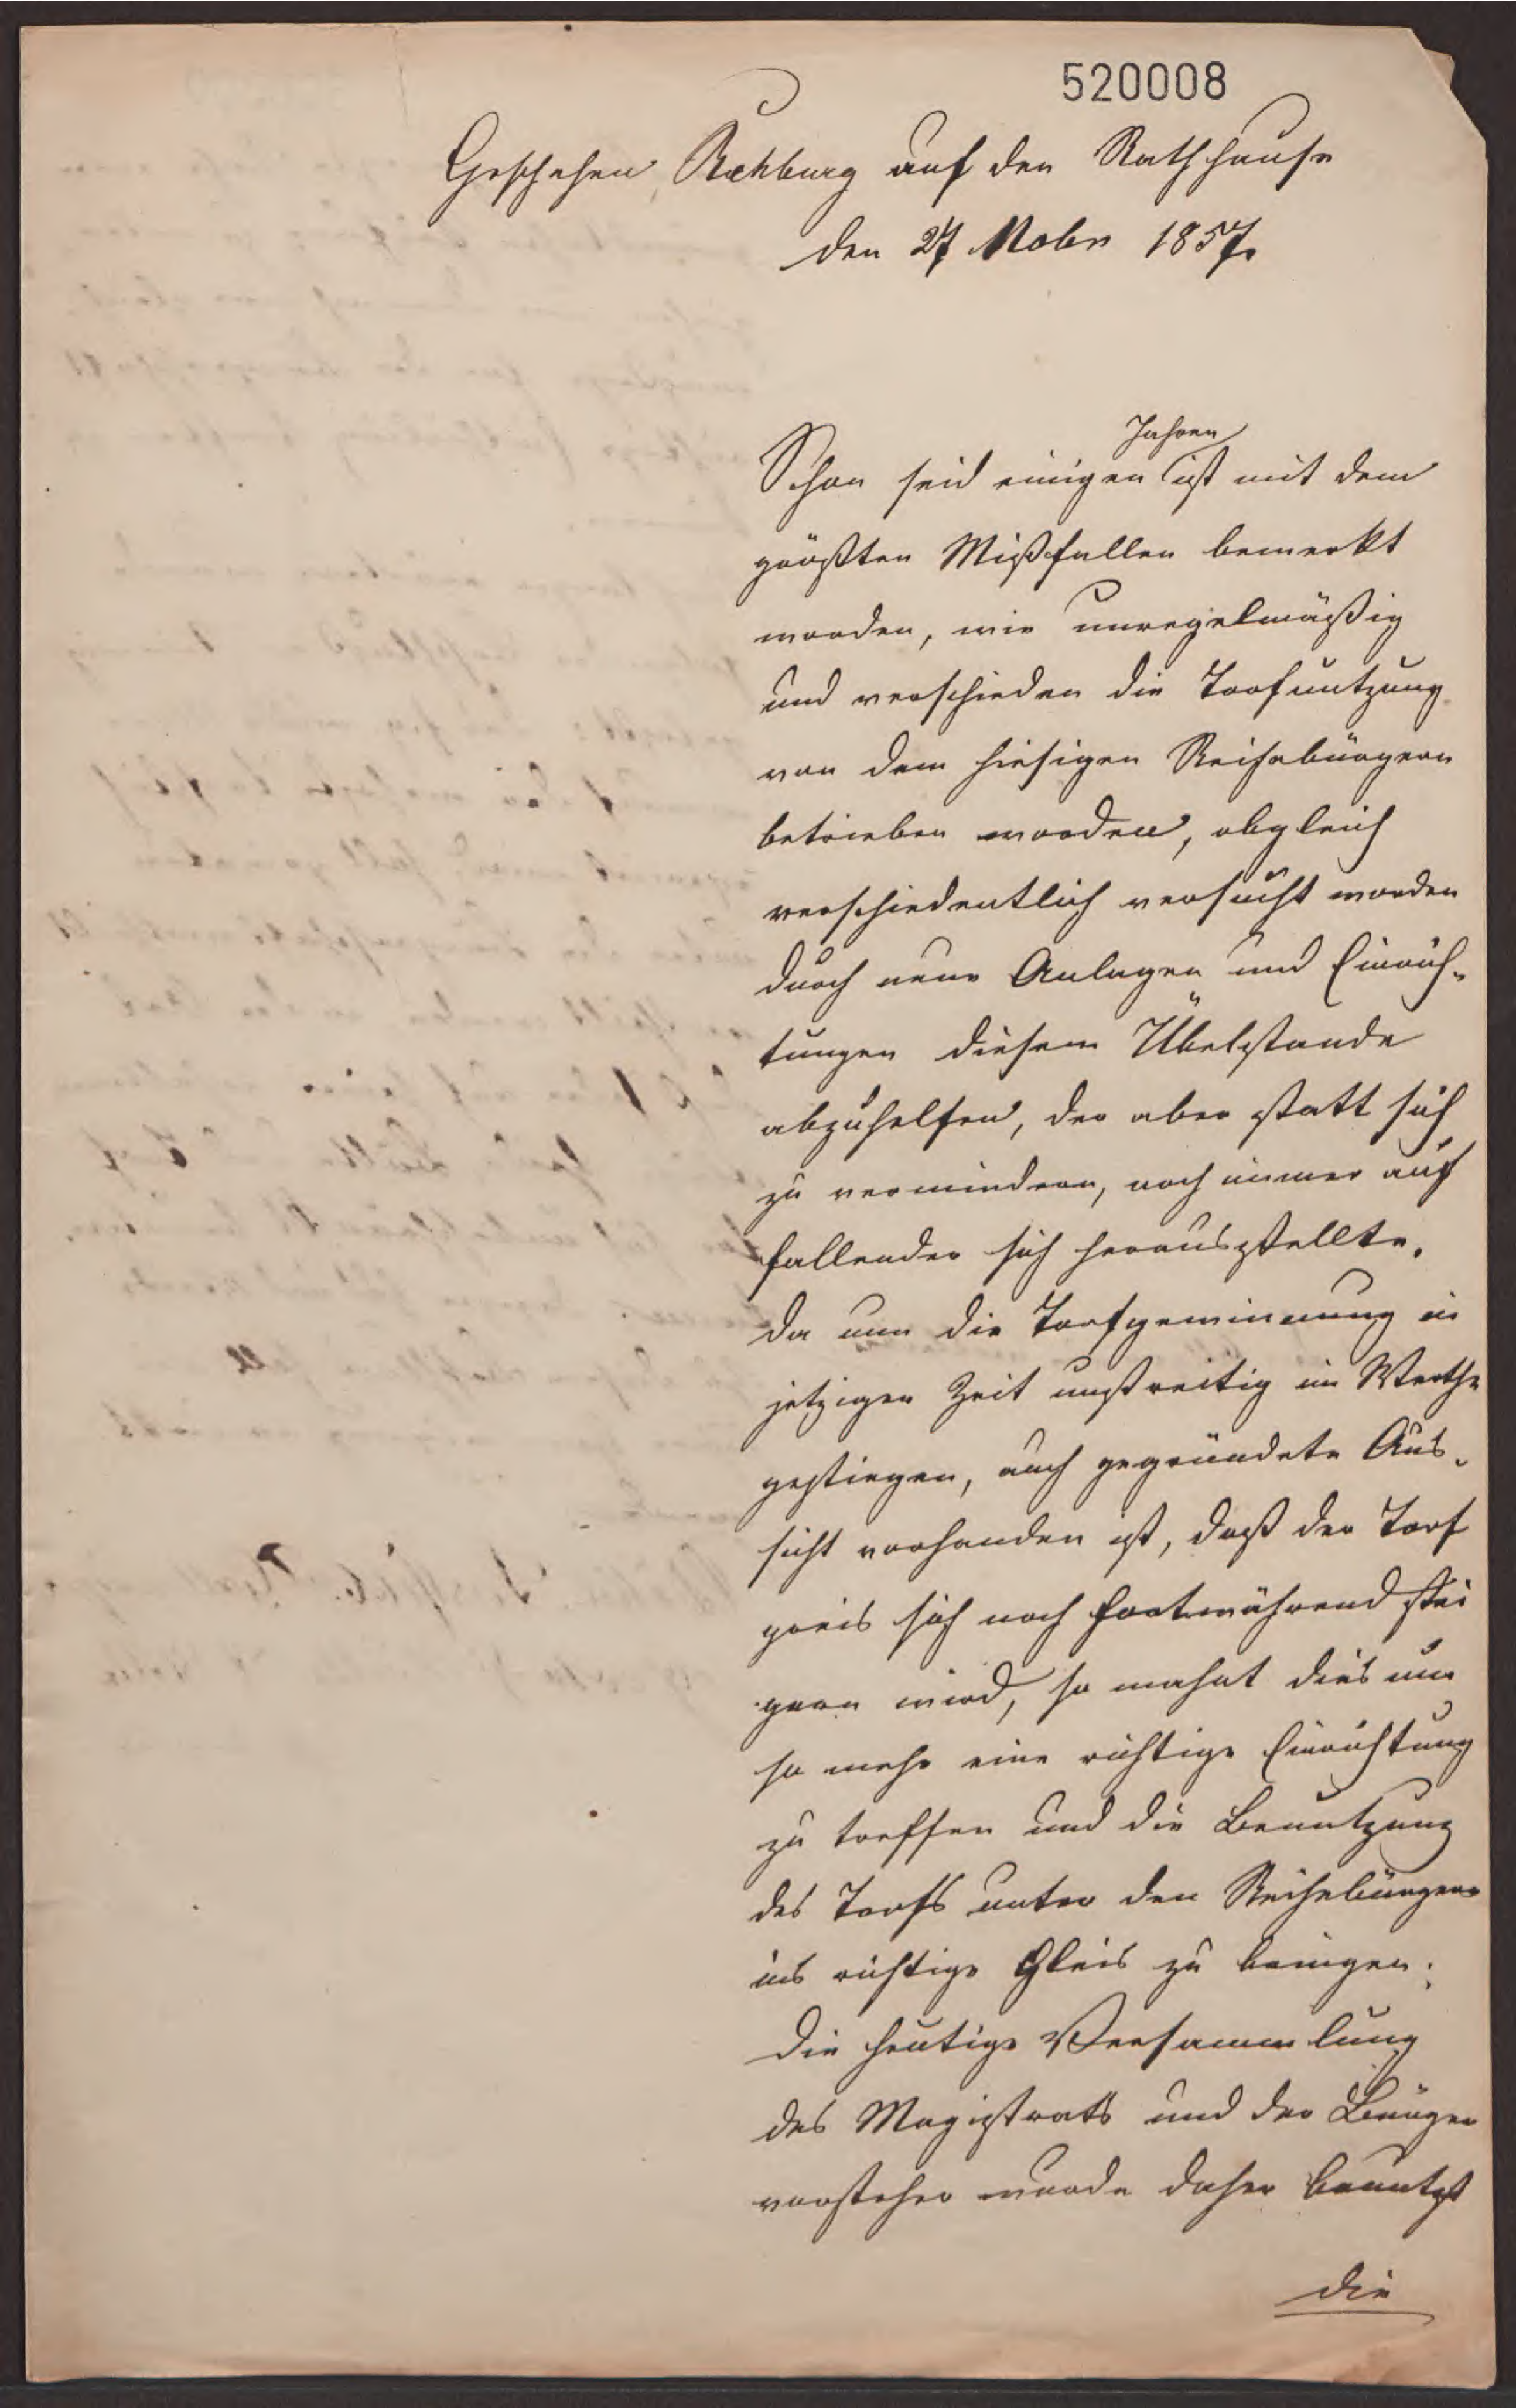 520008
Geschehen, Rehburg auf den Rathhause
den 27 Nobr 1857.
Jahren
Schon seid einigen ist mit dem
größten Mißfallen bemerkt
worden, wie unregelmäßig
und verschieden die Torfnutzung
von dem hiesigen Reihebürgern
betrieben worden, obgleich
verschiedentlich versucht worden
durch neue Anlagen und Einrich-
tungen diesem Übelstande
abzuhelfen, der aber statt sich
zu vermindern, noch immer auf
fallender sich herausstellte.
Da nun die Torfgewinnung in
jetziger Zeit unstreitig im Werthe
gestiegen, auch gegründete Aus-
sicht vorhanden ist, daß der Torf
preis sich noch fortwährend stei
gern wird, so mahnt dies um
so mehr eine richtige Einrichtung
zu treffen und die Benutzung
des Torfs unter den Reihebürgern
ins richtige Gleis zu bringen.
Die heutige Versammlung
des Magistrats und der Bürger
vorsteher wurde daher benutzt
die